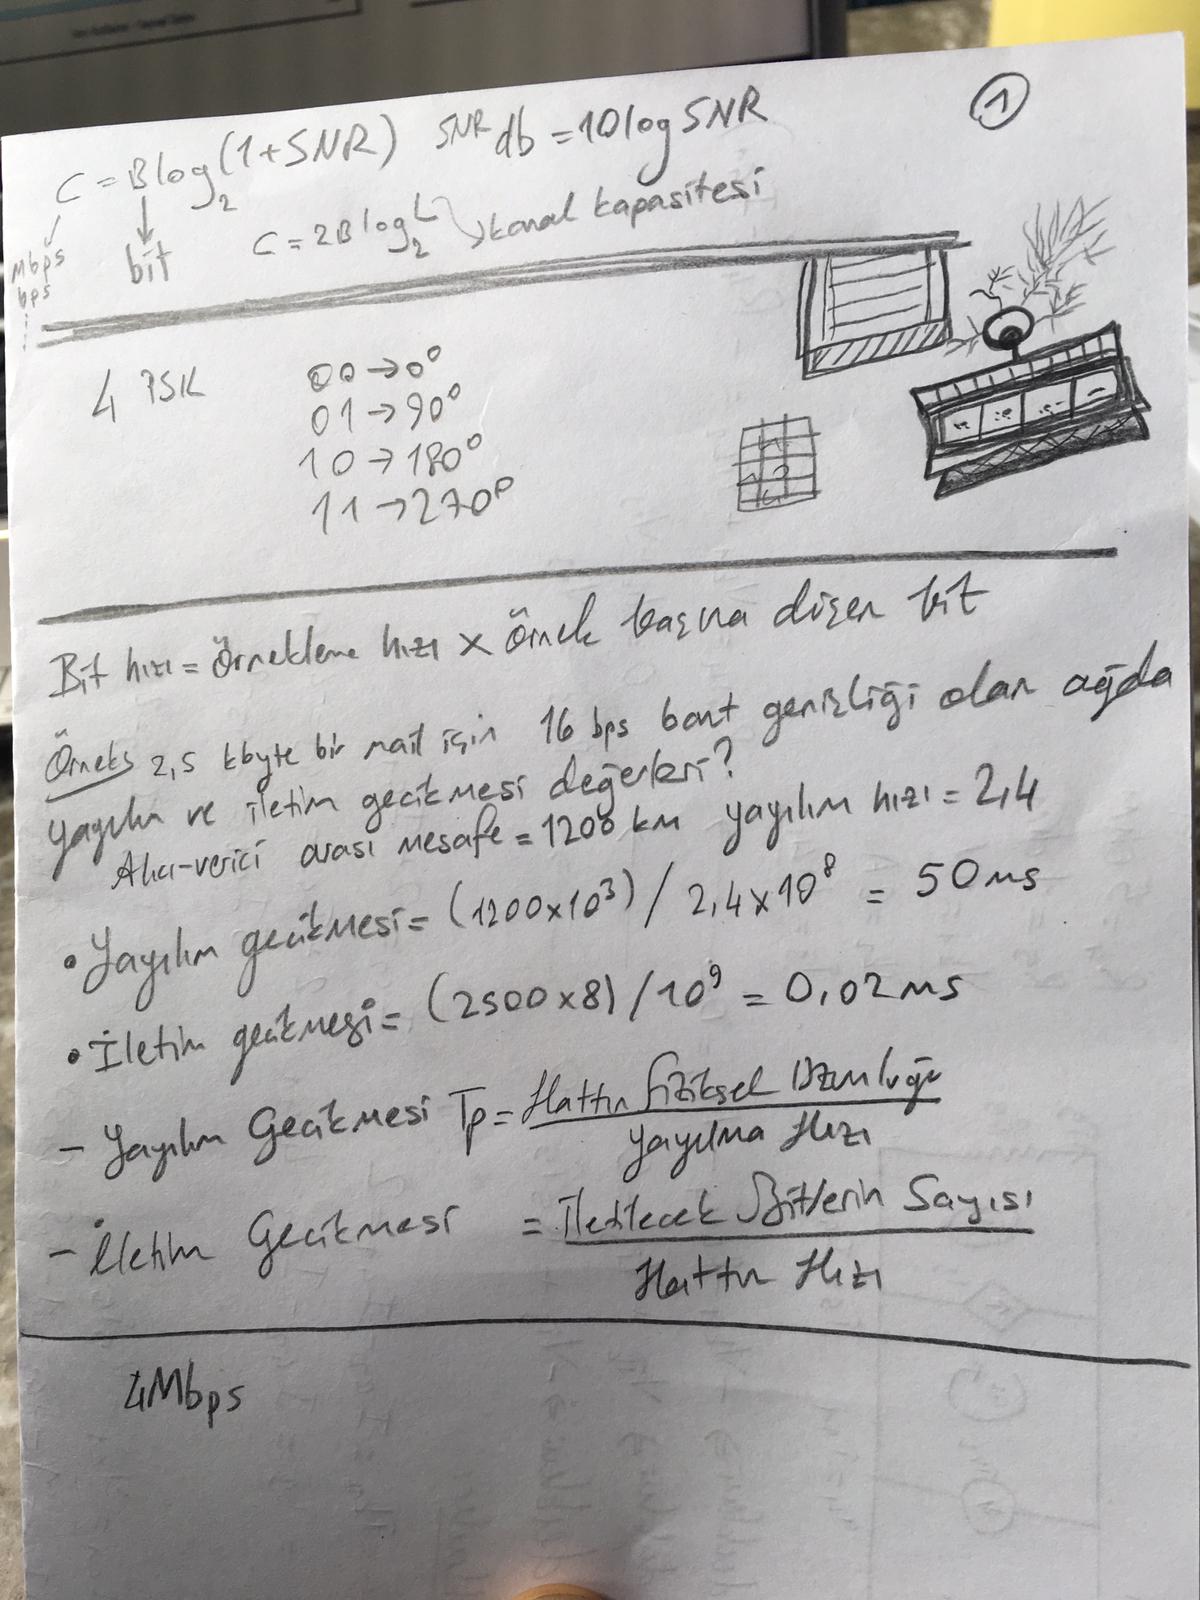 1
C = B log₂(1+SNR) SNR db = 10 log SNR
Mbps
bps
bit
C = 2B log₂ L → kanal kapasitesi
4 PSK
00 → 0°
01 → 90°
10 → 180°
11 → 270°
Bit hızı = Örnekleme hızı x Örnek başına düşen bit
Örnek: 2,5 kbyte bir mail için 16 bps bant genişliği olan ağda
yayılım ve iletim gecikmesi değerleri?
Alıcı-verici arası mesafe = 1200 km yayılım hızı = 2,4
• Yayılım gecikmesi = (1200x10³) / 2,4x10⁸ = 50 ms
• İletim gecikmesi = (2500x8) / 10⁹ = 0,02 ms
- Yayılım Gecikmesi Tp = Hattın fiziksel Uzunluğu
Yayılma Hızı
- İletim Gecikmesi = İletilecek Bitlerin Sayısı
Hattın Hızı
4Mbps